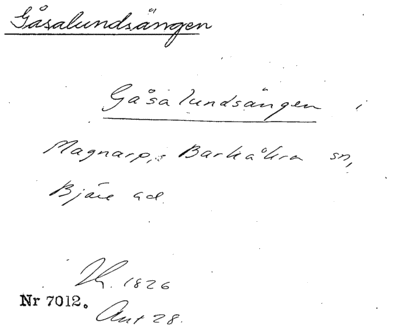 Gåsalundsängen
Gåsalundsängen i
Magnarp, Barkåkra sn,
Bjäre hd.
1826
Nr 7012.
Akt 28.